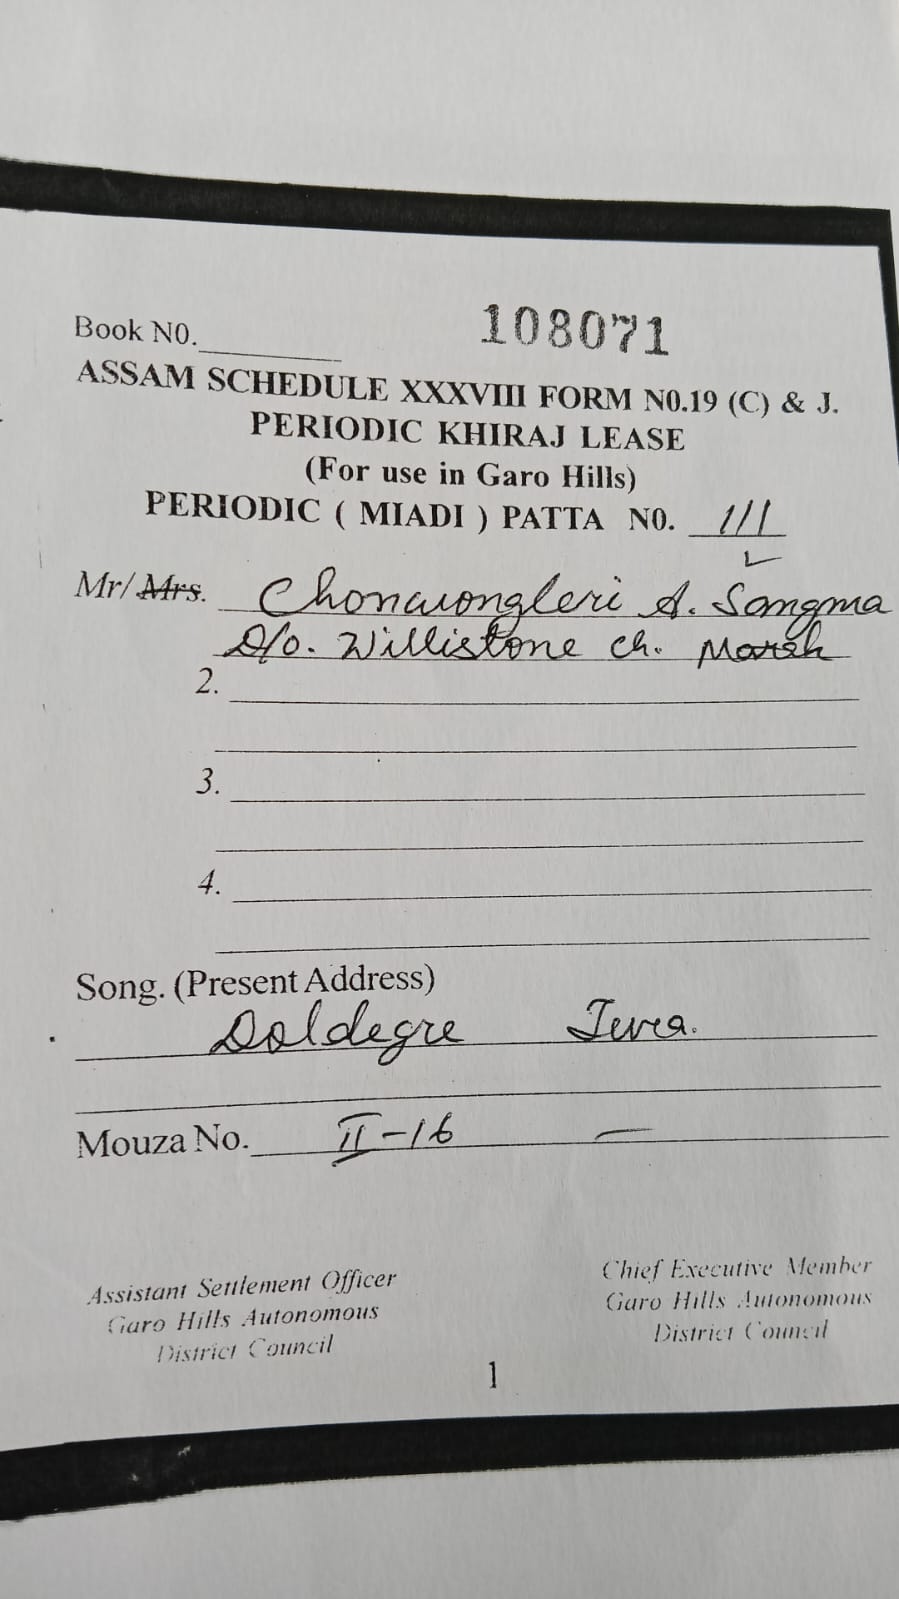 Book N0.
108071
ASSAM SCHEDULE XXXVIII FORM N0.19 (C) & J.
PERIODIC KHIRAJ LEASE
(For use in Garo Hills)
PERIODIC ( MIADI ) PATTA N0. 111
Mr/ Mrs. A. Sangma
D/o. Willistone Ch. Marak
2.
3.
4.
Song. (Present Address)
Doldegre Tura.
Mouza No. II-16 —
Assistant Settlement Officer
Garo Hills Autonomous
District Council
Chief Executive Member
Garo Hills Autonomous
District Council
1